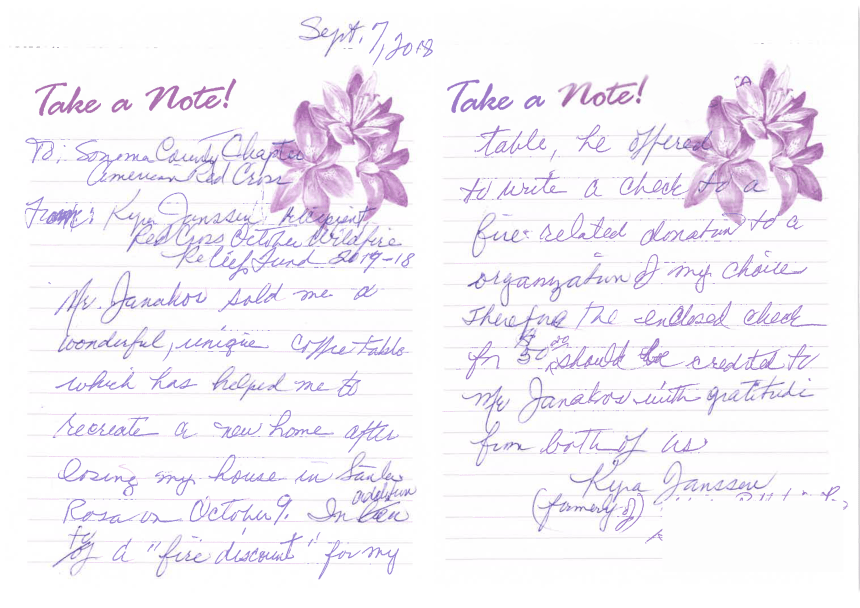 Sept. 7, 2018
Take a Note!
To: Sonoma County Chapter
American Red Cross
From: Kyra Janssen, recipient
Red Cross October Wildfire
Relief Fund 2017-18
Mr. Janakos sold me a
wonderful, unique coffee table
which has helped me to
recreate a new home after
losing my house in Santa
Rosa on October 9. In
addition
to a "fire discount" for my
Take a Note!
table, he offered
to write a check to a
fire-related donation to a
organization of my choice
Therefore the enclosed check
for $50 should be credited to
Mr Janakos with gratitude
from both of us.
Kyra Janssen
(formerly of)